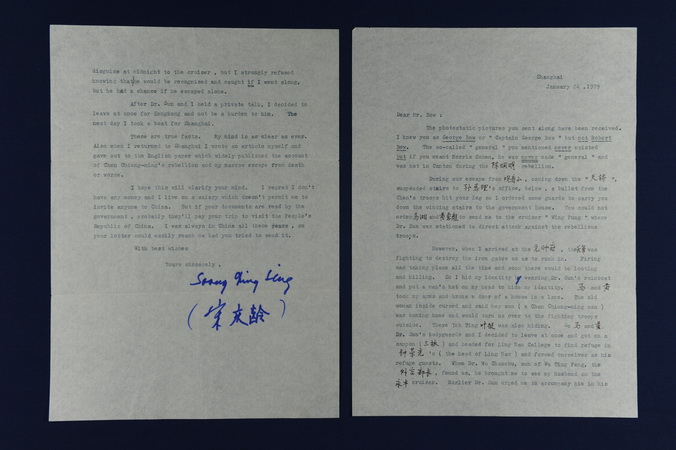 disguise at midnight to the cruiser , but I strongly refused
knowing that we would be recognized and caught if I went along,
but he had a chance if he escaped alone.
After Dr. Sun and I held a private talk, I decided to
leave at once for Hongkong and not be a burden to him. The
next day I took a boat for Shanghai.
These are true facts. My mind is as clear as ever.
Also when I returned to Shanghai I wrote an article myself and
gave out to the English paper which widely published the account
of Chen Chiung-ming's rebellion and my narrow escape from death
or worse.
I hope this will clarify your mind. I regret I don't
have any money and I live on a salary which doesn't permit me to
invite anyone to China. But if your documents are read by the
government , probably they'll pay your trip to visit the People's
Republic of China. I was always in China all these years , so
your letter could easily reach me had you tried to send it.
With best wishes
Yours sincerely,
Soong Qing Ling
(宋庆龄)
Shanghai
January 24 ,1979
Dear Mr. Bow :
The photostatic pictures you sent along have been received.
I knew you as George Bow or " Captain George Bow " but not Robert
Bow. The so-called " general " you mentioned never existed
But if you meant Morris Cohen, he was never made " general " and
was not in Canton during the 陈炯明 rebellion.
During our escape from 观音山, coming down the "天桥",
suspended stairs to 孙总理's office, below , a bullet from the
Chen's troops hit your leg so I ordered some guards to carry you
from the winding stairs to the government house. You could not
order 马湘 and 黄惠龙 to send me to the cruiser " Wing Fung " where
Dr. Sun was stationed to direct attack against the rebellious
troops.
However, when I arrived at the was
fighting to destroy the iron gates so as to rush in. Firing
was taking place all the time and soon there could be looting
and killing. So I hid my identity by wearing Dr. Sun's raincoat
and put a man's hat on my head to hide my identity. 马 and 黄
took my arms and broke a door of a house in a lane. The old
woman inside cursed and said her son ( a Chen Chiung-ming man )
was coming home and would turn us over to the fighting troops
outside. There 叶挺 was also hiding. So 马 and 黄
Dr. Sun's bodyguards and I decided to leave at once and got on a
sampan (三板) and headed for Ling Nan College to find refuge in
钟荣光 's ( the head of Ling Nan ) and forced ourselves as his
refuge guests. When Dr. Wu Chaoshu, son of Wu Ting Fang, the
外交部长, found us, he brought me to see my husband on the
永丰 cruiser. Earlier Dr. Sun urged me to accompany him in his